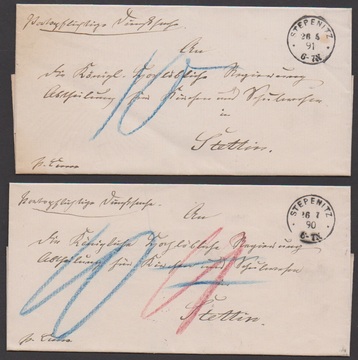 Portopflichtige Dienstsache.
STEPENITZ
26 4
91
6-7N.
An
die Königl. Hochlöbliche Regierung
Abtheilung für Kirchen und Schulwesen
in
Stettin.
10
Portopflichtige Dienstsache.
STEPENITZ
16 1
90
6-7N.
An
die Königliche Hochlöbliche Regierung
Abtheilung für Kirchen und Schulwesen
Stettin.